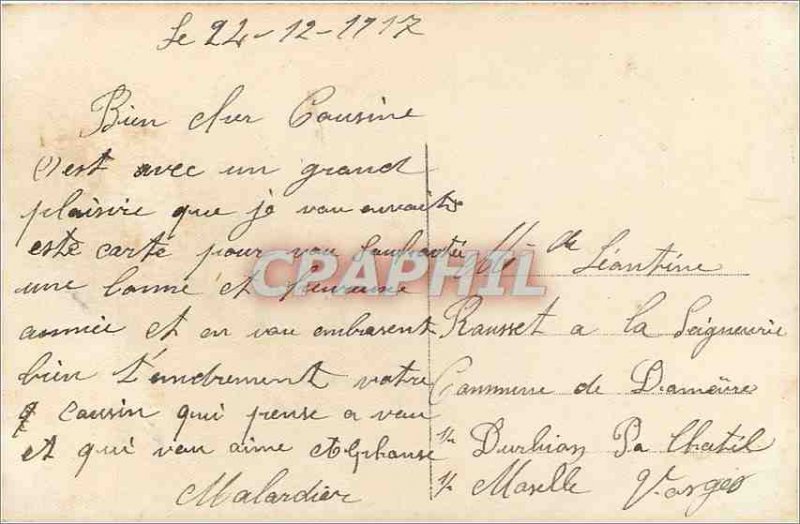 Le 24-12-1917
Bien cher Cousine
C'est avec un grand
plaisire que je vou anvoit
este carte pour vou souhaitée
une bonne et heureuse
année et en vou embrasent
bien t'endrement votre
cousin qui pense a vou
et qui vou aime Alphonse
Malardier
CPARHIL
Léontine
Rousset a la Seigneurie
Commune de Damaüre
s/n Durbion Pa Chatel
s/ Moselle Vosges